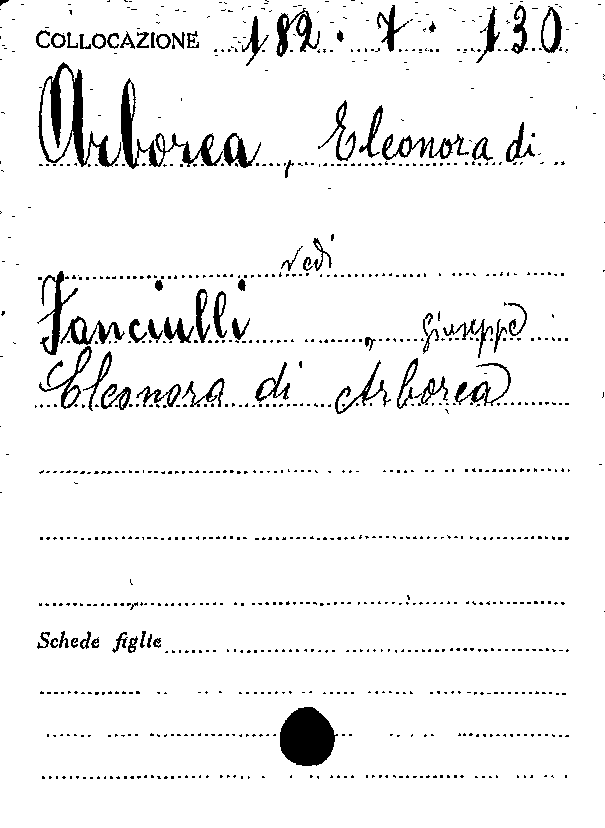 COLLOCAZIONE 182.7.130
Arborea, Eleonora di
vedi
Fanciulli, Giuseppe
Eleonora di Arborea
Schede figlie